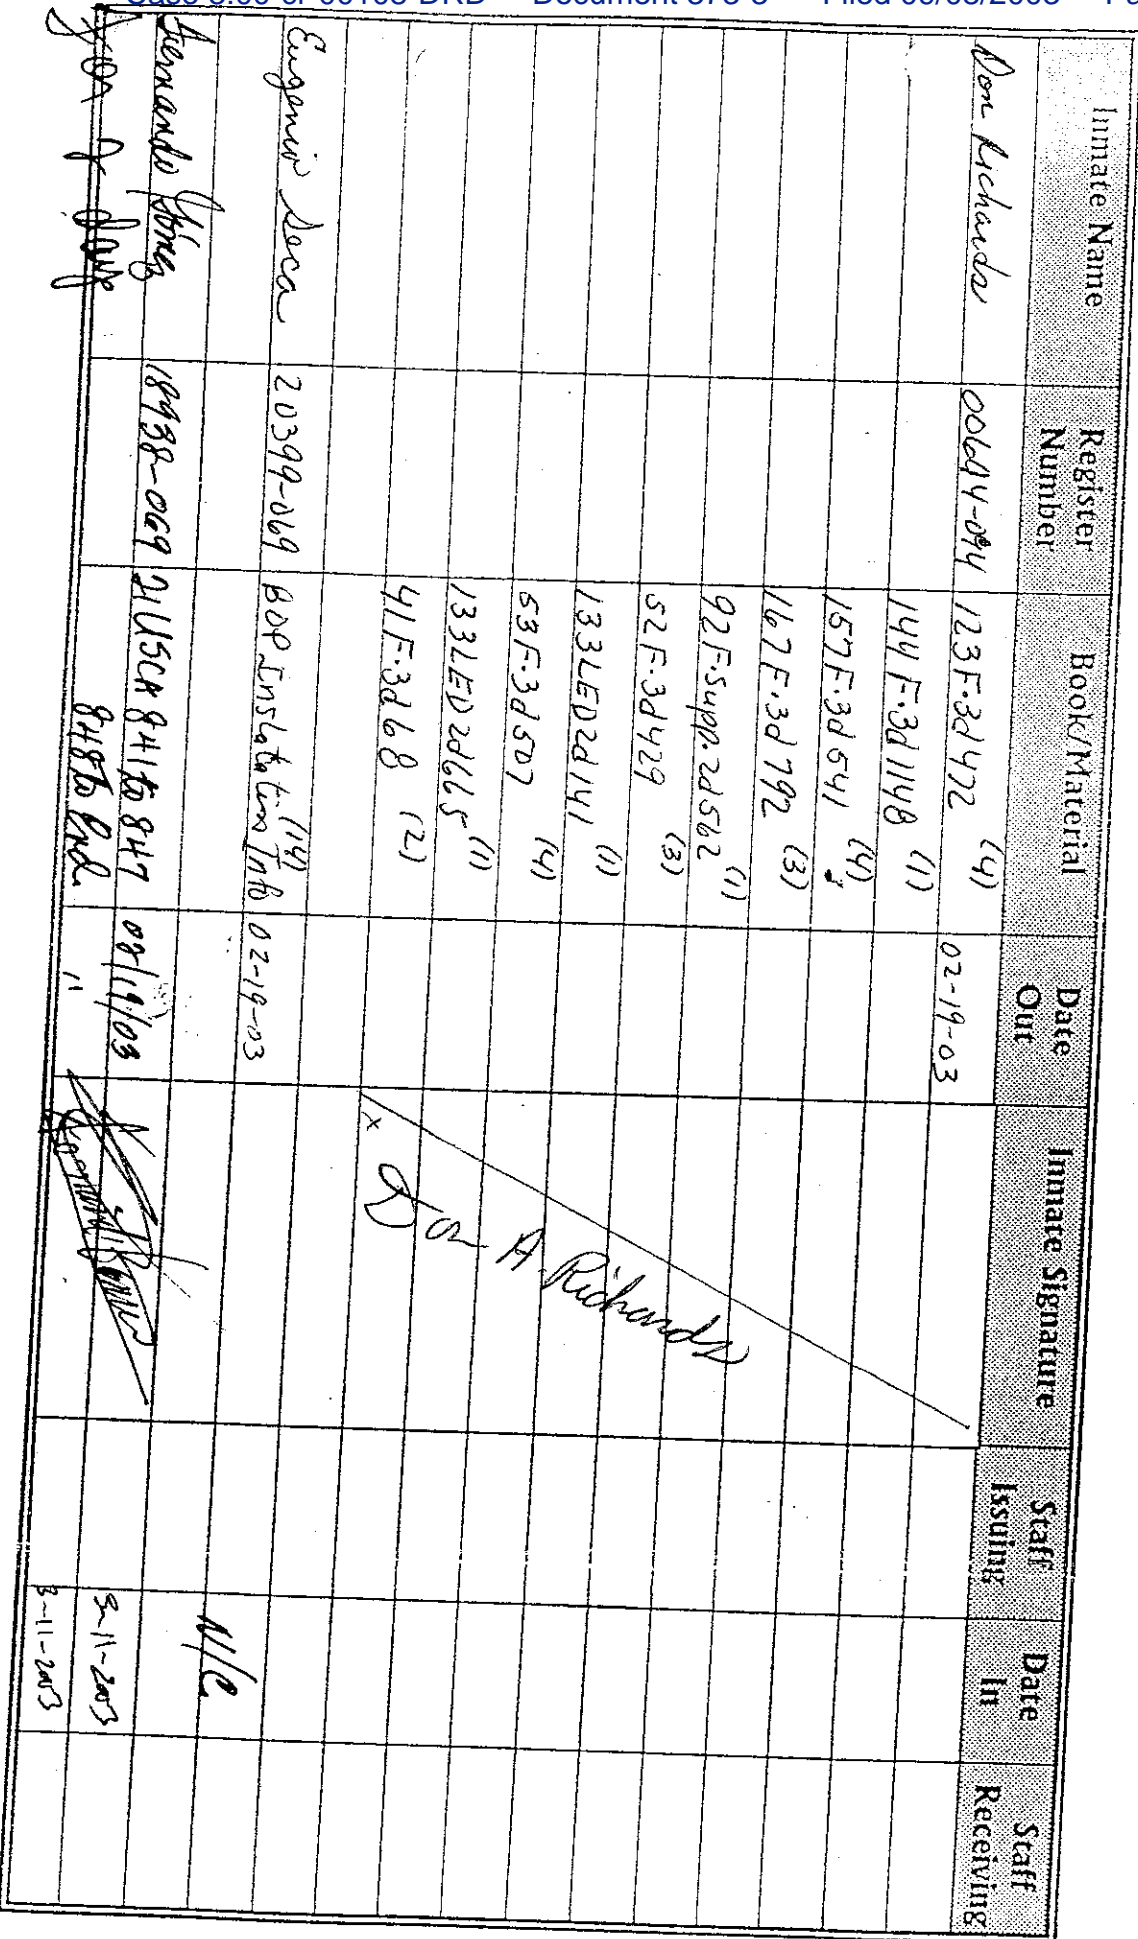 Inmate Name Register Number Book/Material Date Out Inmate Signature Staff Issuing Date In Staff Receiving
Don Richards 123F.3d472 (4) 02-19-03
144 F.3d1148 (1)
157F.3d541 (4)
167F.3d792 (3)
92F.Supp.2d562 (1)
52F.3d429 (3)
133LED2d141 (1)
53F.3d507 (4)
133LED2d665 (1)
41F.3d68 (2)
x Don A. Richards
Eugenio Seca 20399-069 BOP Info (14) 02-19-03
N/C
Fernando 18938-069 21USCA 841 to 847 02/19/03 3-11-2003
848 to End. " 3-11-2003